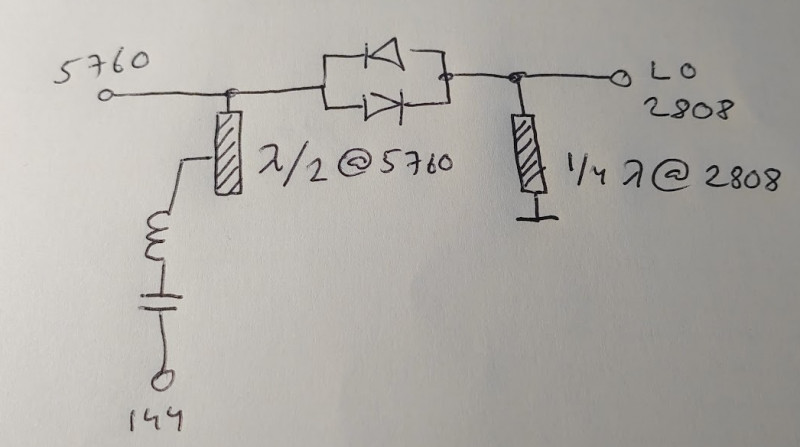 5760
LO
2808
λ/2 @ 5760
1/4 λ @ 2808
144